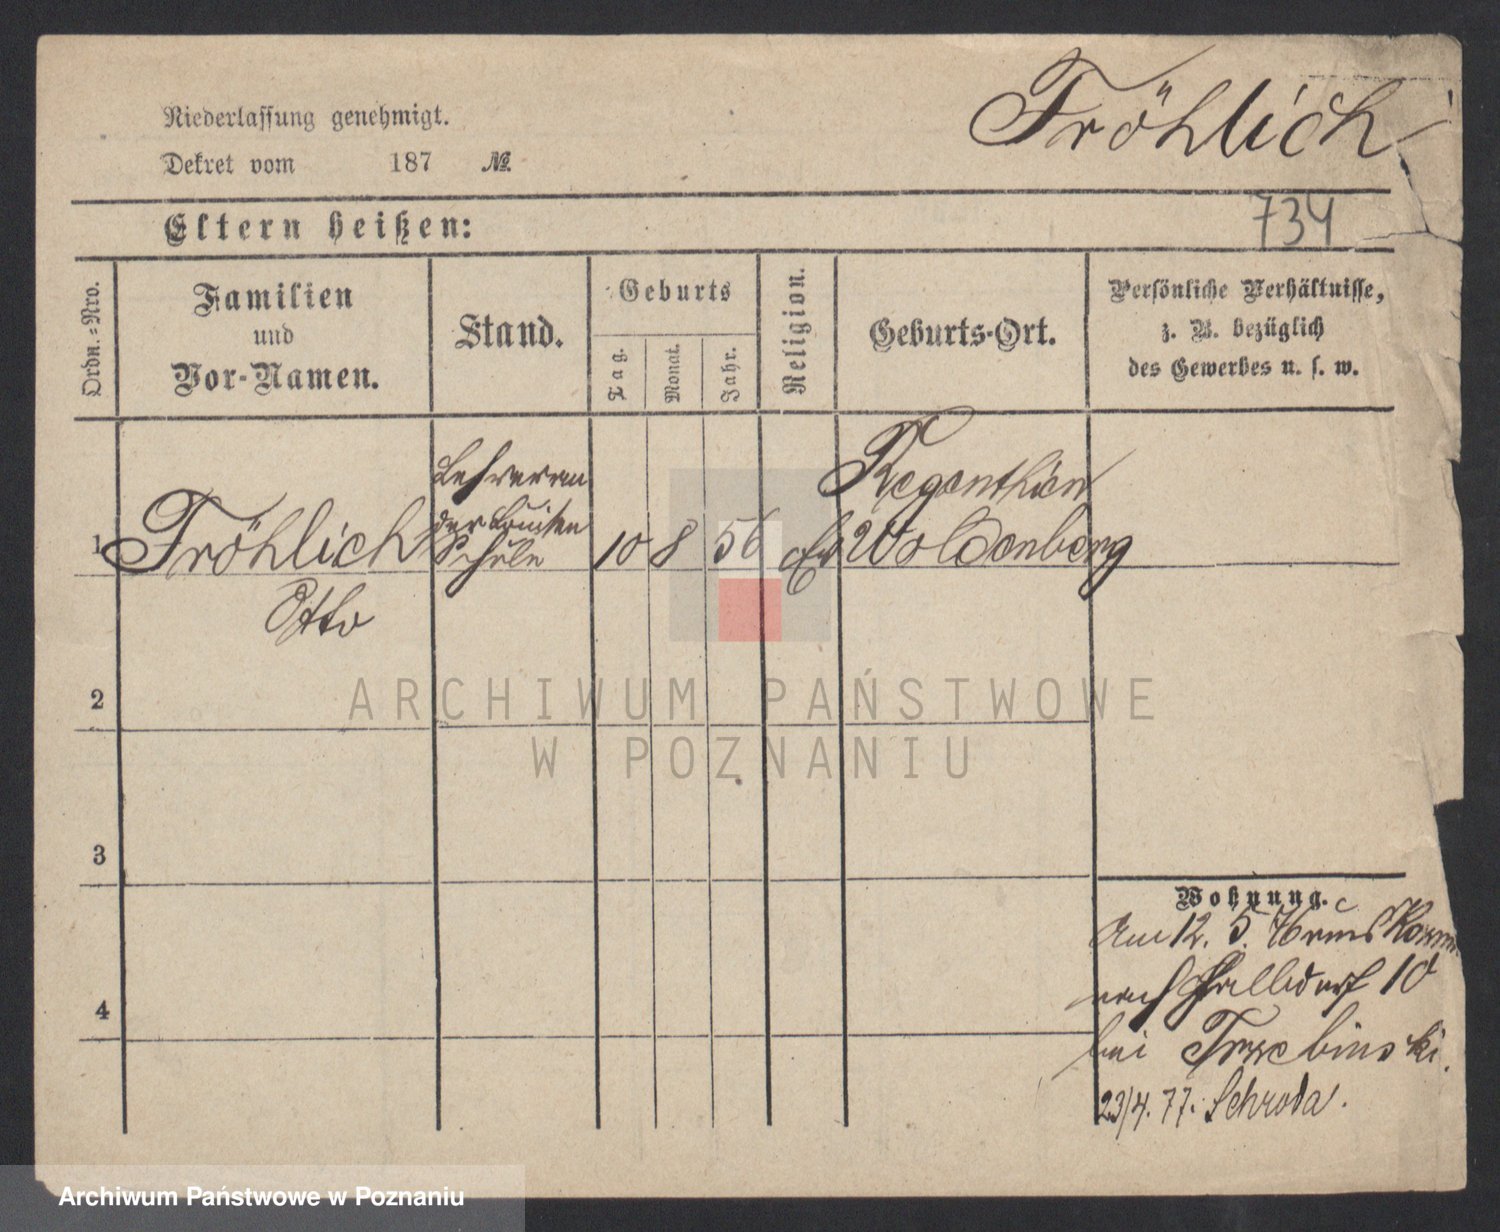 Fröhlich
Niederlassung genehmigt.
Dekret vom 187 №.
734
Eltern heißen:
Ordn.-Nro.
Familien
und
Vor-Namen.
Stand.
Geburts
Tag.
Monat.
Jahr.
Religion.
Geburts-Ort.
Persönliche Verhältnisse,
z. B. bezüglich
des Gewerbes u. s. w.
1
Fröhlich
Otto
Lehrer an
der Luisen
Schule
10 8 56
Regenthien
Woldenberg
2
3
4
Wohnung.
Am 12. 5. 76
nach Halldorf 10
bei Trzebinski.
23/4. 77. Schroda.
ARCHIWUM PAŃSTWOWE
W POZNANIU
Archiwum Państwowe w Poznaniu